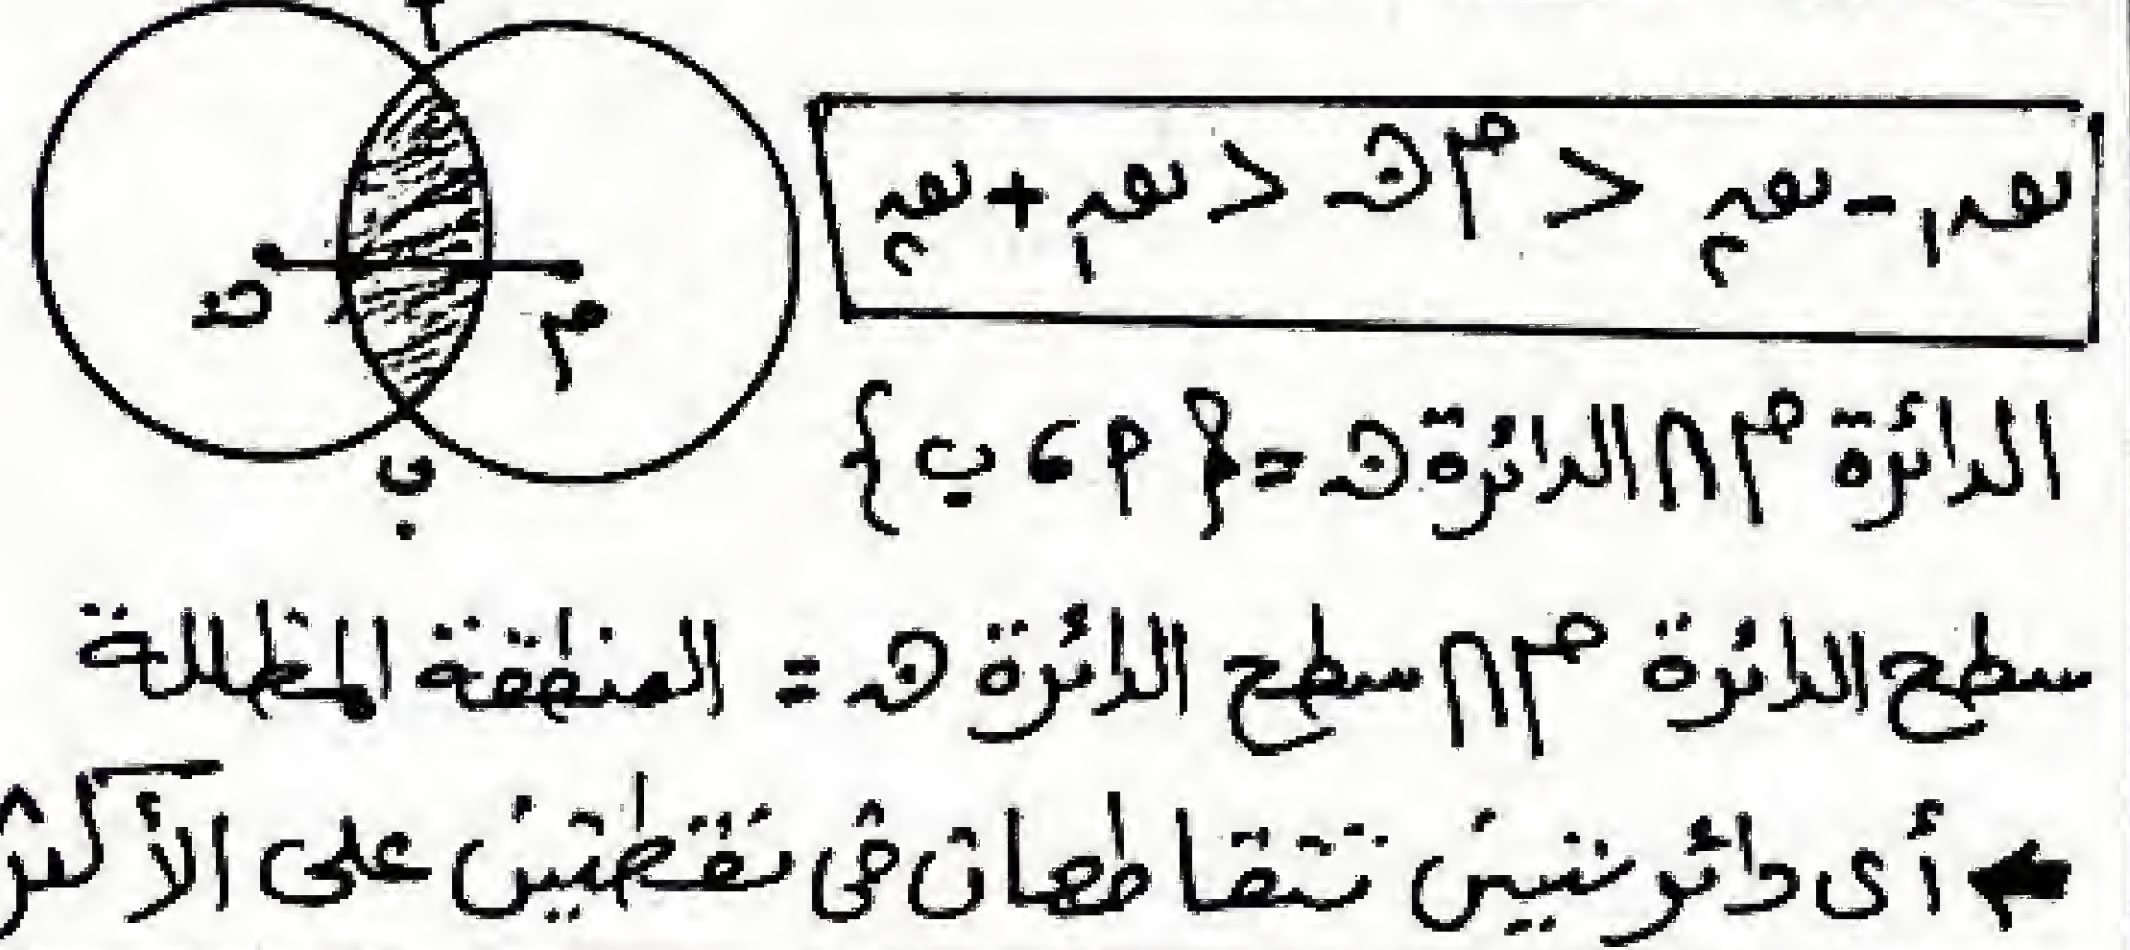 أ
ن م
ب
نق١ - نق٢ > م ن > نق١ + نق٢
الدائرة م ∩ الدائرة ن = { أ ، ب }
سطح الدائرة م ∩ سطح الدائرة ن = المنطقة المظللة
← أى دائرتين تتقاطعان فى نقطتين على الأكثر